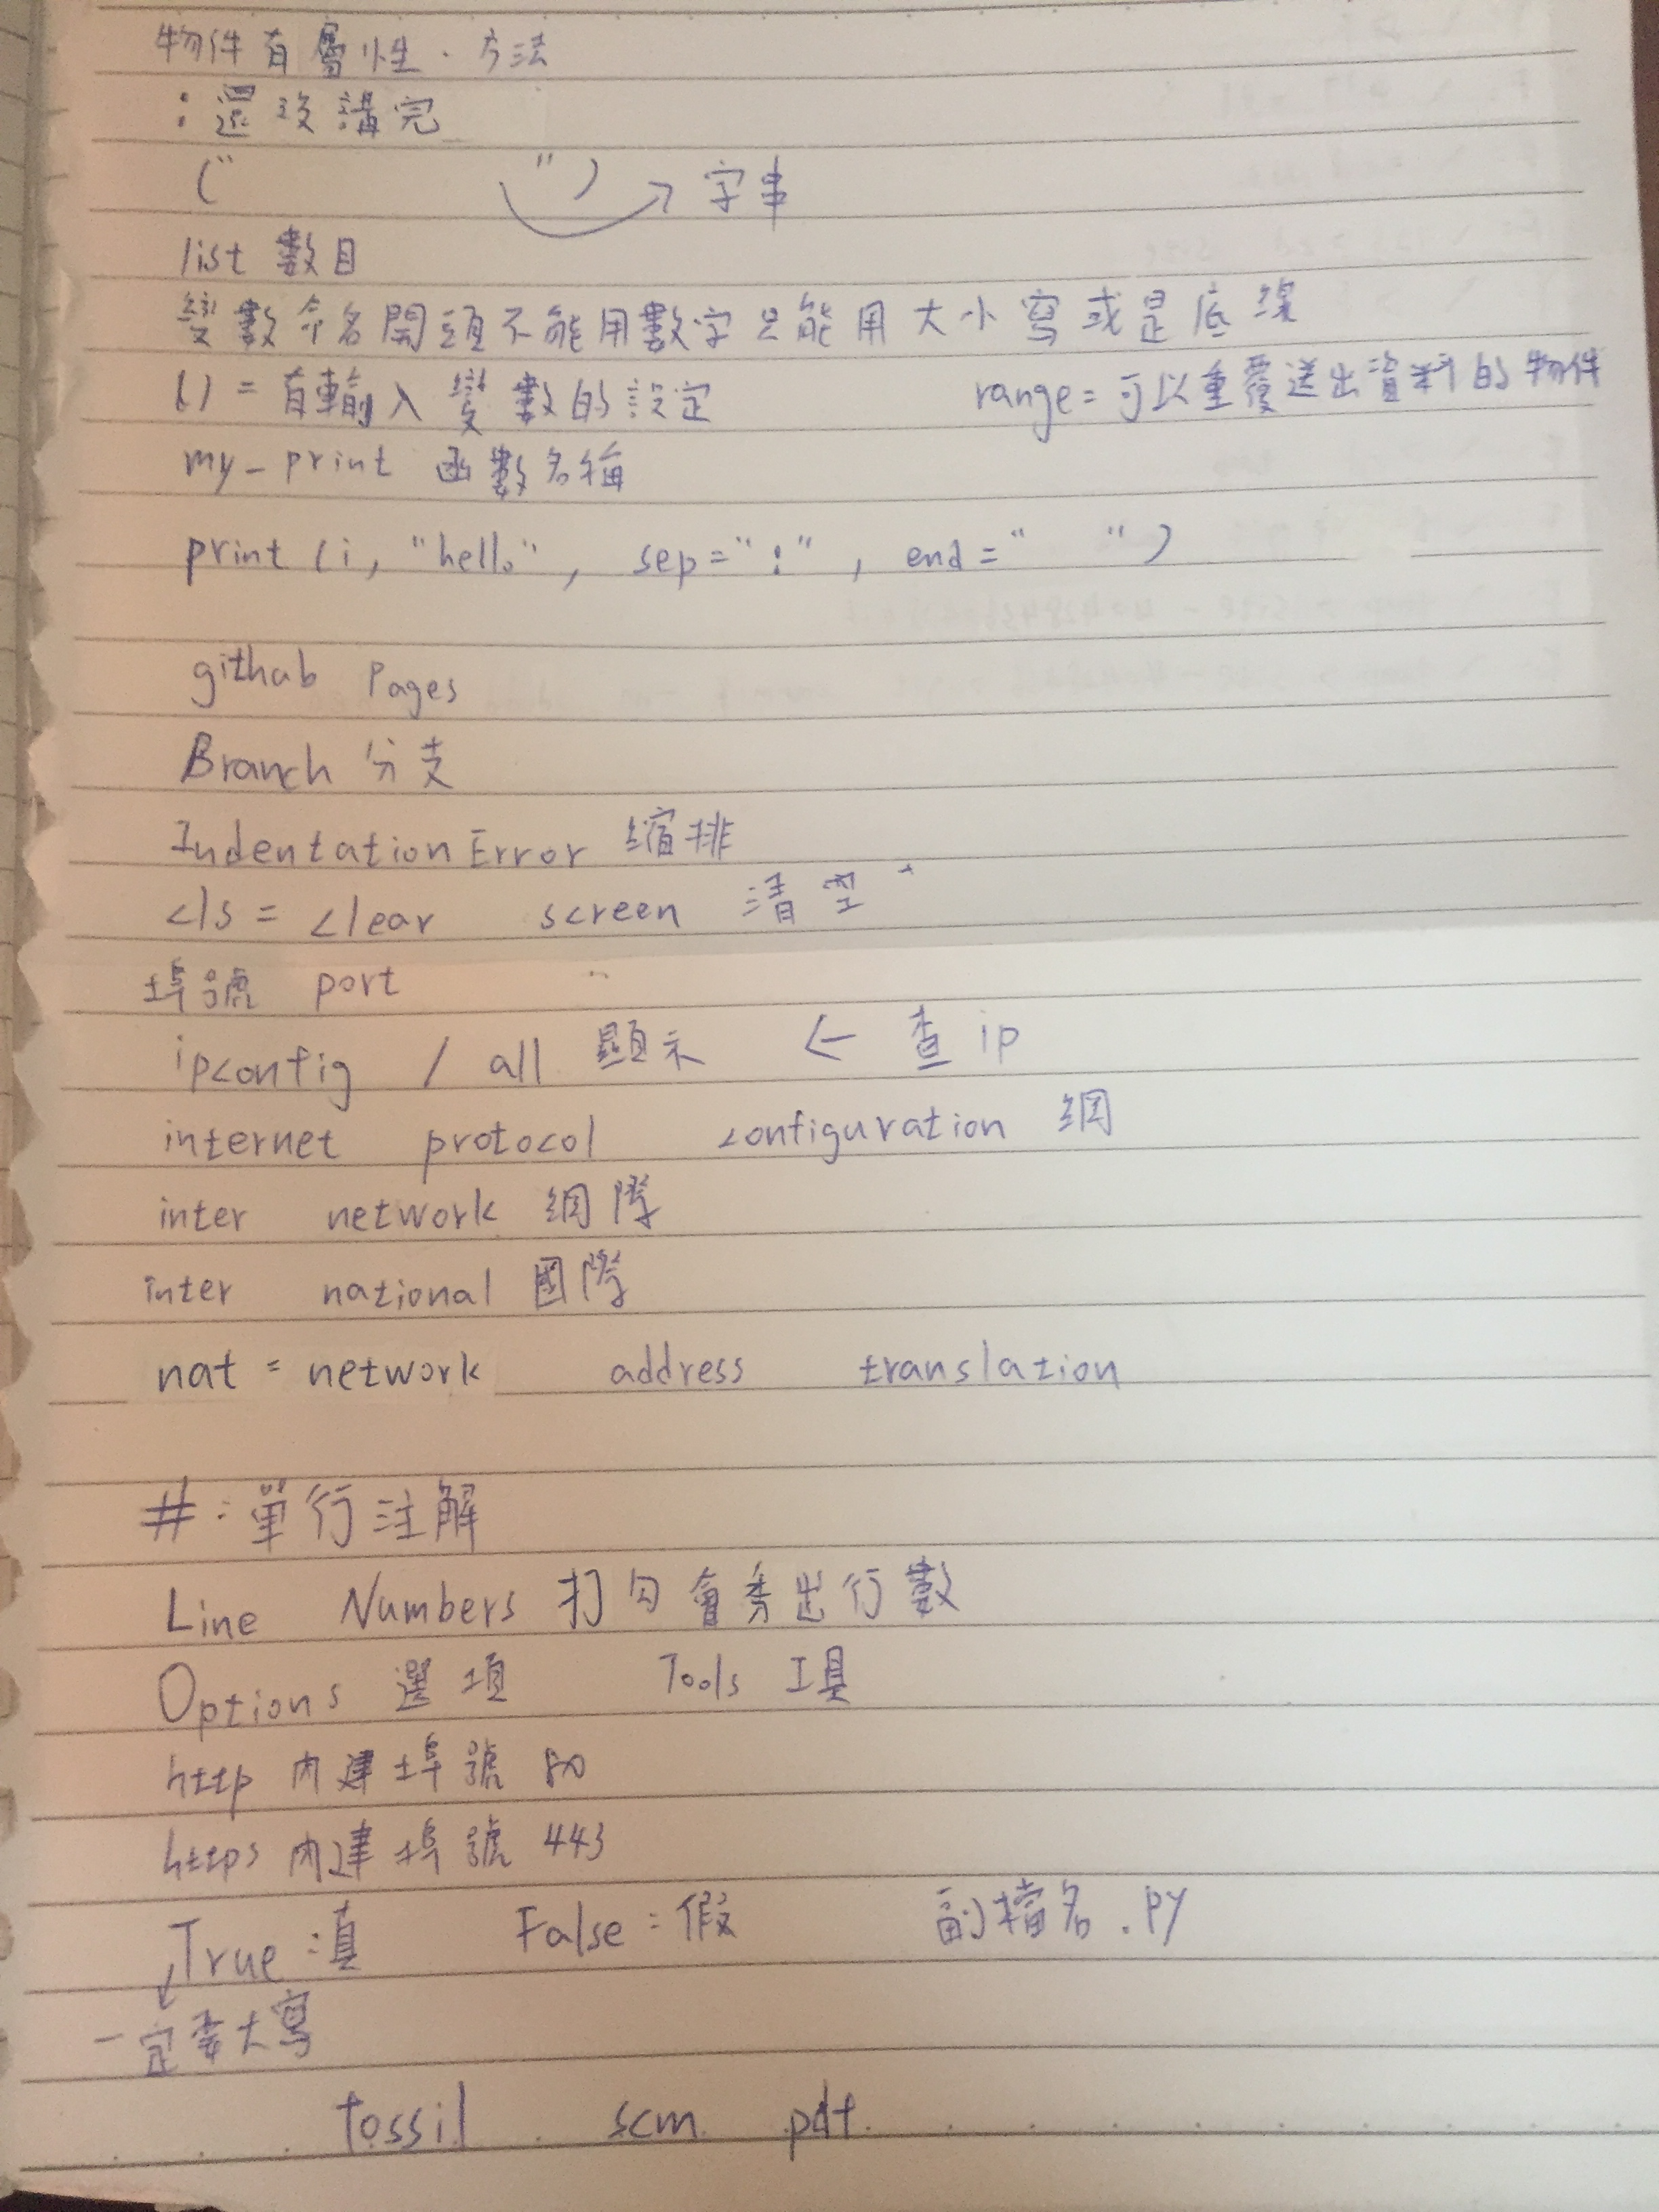 物件有屬性、方法
：還沒講完
(“ ”) → 字串
list 數目
變數命名開頭不能用數字只能用大小寫或是底線
() = 有輸入變數的設定 range = 可以重覆送出資料的物件
my_print 函數名稱
print (i, "hello", sep=":", end=" ")
githab Pages
Branch 分支
IndentationError 縮排
cls = clear screen 清空
埠號 port
ipconfig / all 顯示 ← 查ip
internet protocol configuration 網
inter network 網際
inter national 國際
nat = network address translation
#：單行注解
Line Numbers 打勾會秀出行數
Options 選項 Tools 工具
http 內建埠號 80
https 內建埠號 443
True：真 False：假 副檔名.py
一定要大寫
fossil scm pdf